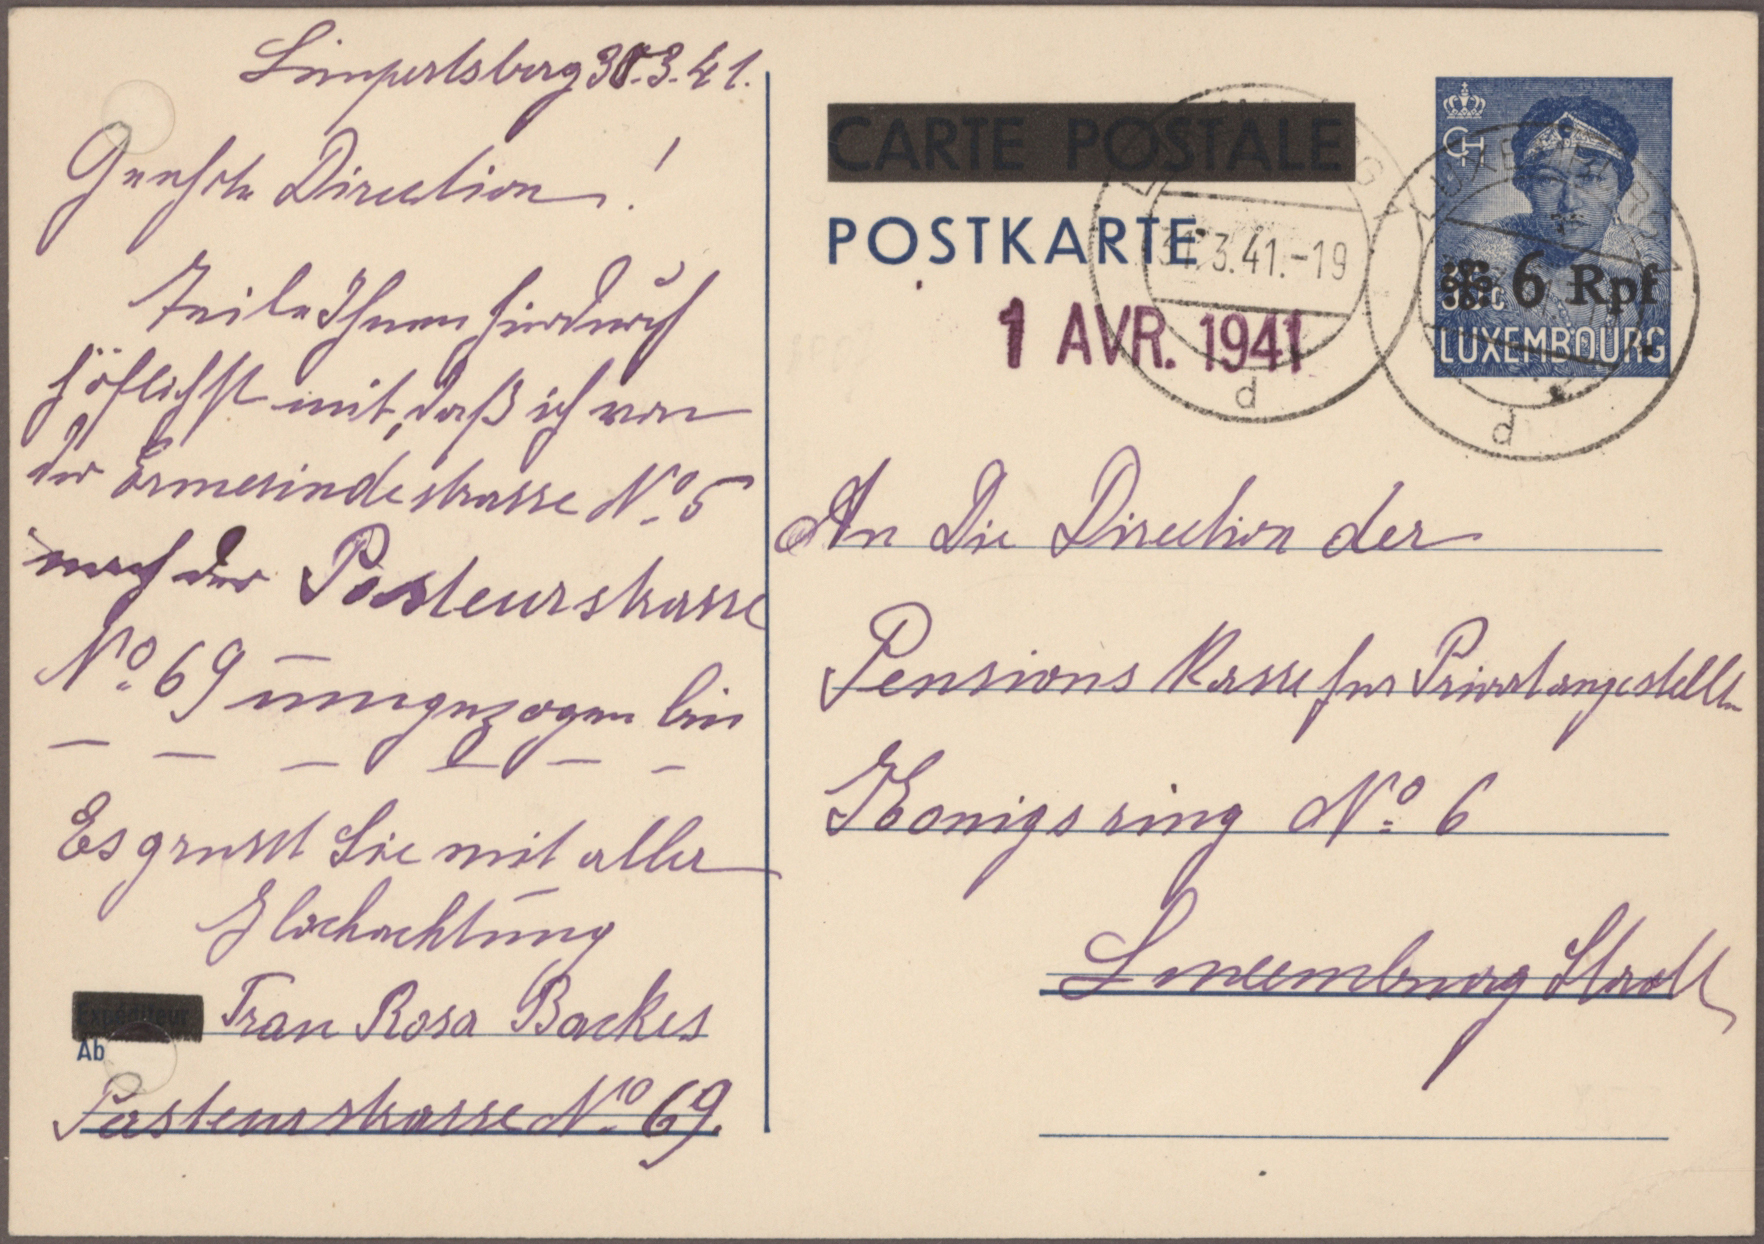 Limpertsberg 30.3.41.
Geehrte Direction!
Teile Ihnen hierdurch
höflichst mit, daß ich von
der Ermesindestrasse Nº 5
nach der Pasteurstrasse
Nº 69 umgezogen bin
Es grusst Sie mit aller
Hochachtung
Expéditeur
Ab
Frau Rosa Backes
Pasteurstrasse Nº 69.
CARTE POSTALE
POSTKARTE
31.3.41.-19
d
1 AVR. 1941
GH
6 Rpf
LUXEMBOURG
d
An Die Direction der
Pensions Kasse fur Privatangestellte
Konigsring Nº 6
Luxemburg Stadt